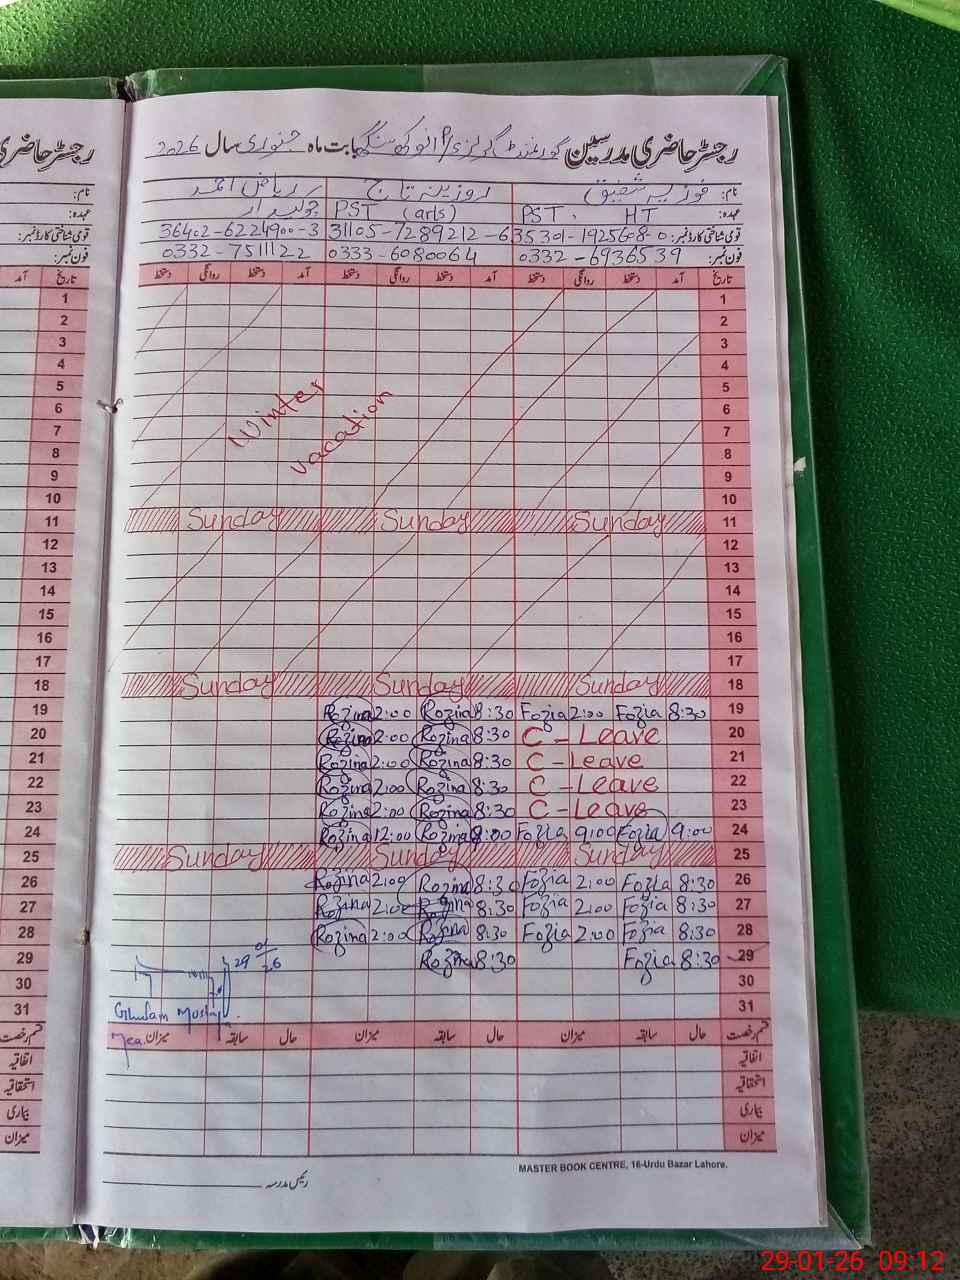 رجسٹر حاضری مدرسین گورنمنٹ گرلز پرائمری بابت ماہ جنوری سال 2026
نام: فوزیہ شفیق روزینہ تاج ریاض احمد
عہدہ: PST . HT PST (arts) چوکیدار
قومی شناختی کارڈ نمبر: 35301-1925608-0 31105-7289212-6 36402-6224900-3
فون نمبر: 0332-6936539 0333-6080064 0332-7511122
تاریخ آمد دستخط روانگی دستخط آمد دستخط روانگی دستخط آمد دستخط روانگی دستخط
1
2
3
4
5
6
7
8
9
10
Winter
vacation
Sunday Sunday Sunday 11
12
13
14
15
16
17
Sunday Sunday Sunday 18
Rozina 2:00 Rozina 8:30 Fozia 2:00 Fozia 8:30 19
Rozina 2:00 Rozina 8:30 C - Leave 20
Rozina 2:00 Rozina 8:30 C - Leave 21
Rozina 2:00 Rozina 8:30 C - Leave 22
Rozina 2:00 Rozina 8:30 C - Leave 23
Rozina 12:00 Rozina 9:00 Fozia 9:00 Fozia 9:00 24
Sunday Sunday Sunday 25
Rozina 2:00 Rozina 8:30 Fozia 2:00 Fozia 8:30 26
Rozina 2:00 Rozina 8:30 Fozia 2:00 Fozia 8:30 27
Rozina 2:00 Rozina 8:30 Fozia 2:00 Fozia 8:30 28
Rozina 8:30 Fozia 8:30 29
30
31
29/01/26
Ghulam Mustafa
Mea
قسم رخصت حال سابقہ میزان حال سابقہ میزان حال سابقہ میزان
اتفاقیہ
استحقاقیہ
بیماری
میزان
MASTER BOOK CENTRE, 16-Urdu Bazar Lahore.
رئیس مدرسہ
رجسٹر حاضری
نام:
عہدہ:
قومی شناختی کارڈ نمبر:
فون نمبر:
تاریخ آمد
1
2
3
4
5
6
7
8
9
10
11
12
13
14
15
16
17
18
19
20
21
22
23
24
25
26
27
28
29
30
31
قسم رخصت
اتفاقیہ
استحقاقیہ
بیماری
میزان
29-01-26 09:12